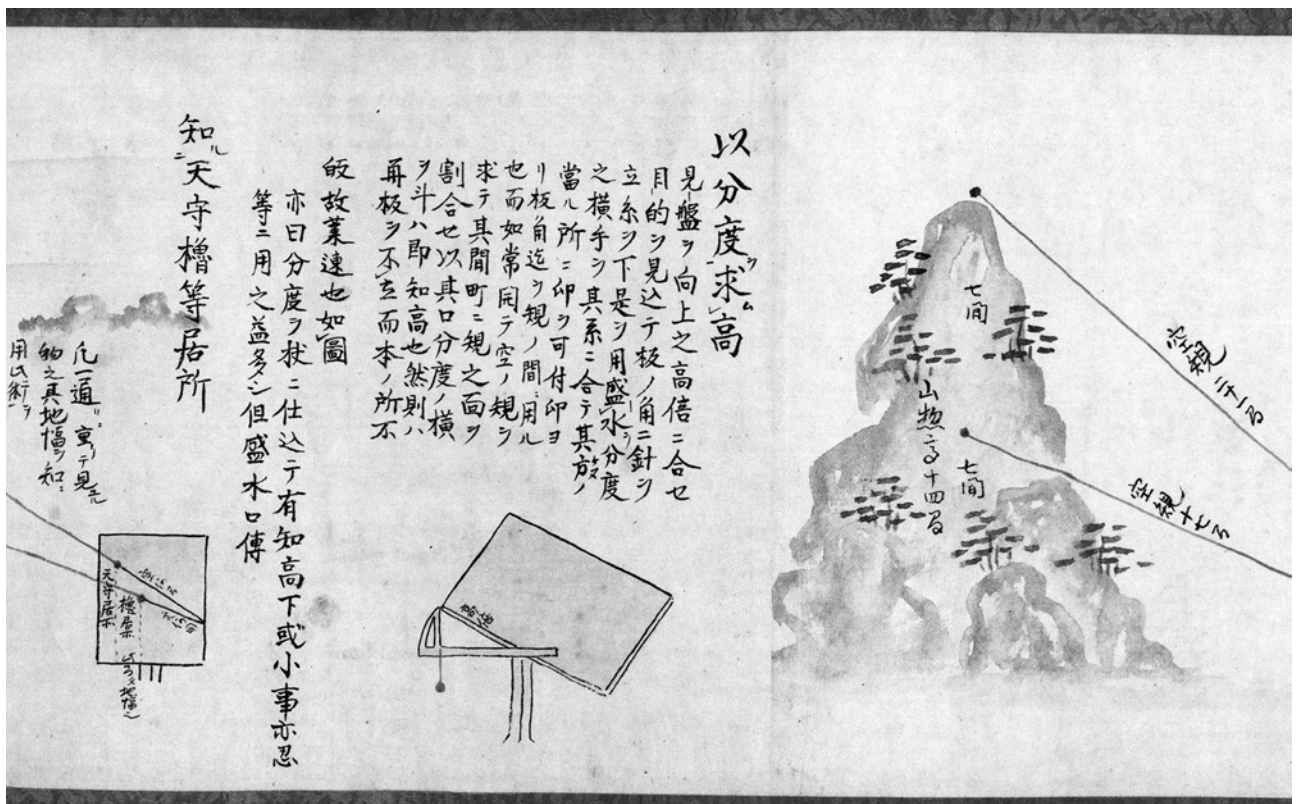 空規二十一ろ
空規十七ろ
七間
山惣高十四間
七間
以分度求ムルヲ高
見盤ヲ向上之高倍ニ合セ
目的ヲ見込テ板ノ角ニ針ヲ
立糸ヲ下是ヲ用盛水ヲ分度
之横手ヲ其系ニ合テ其放ノ
當ル所ニ印ヲ可付印ヨ
リ板角迄ヲ規ノ間ニ用ル
也而如常同テ空ノ規ヲ
求テ其間町ニ規之面ヲ
割合セ以其口分度ノ横
ヲ斗ハ即知高也然則ハ
再板ヲ不立而本ノ所不
皈故業速也如圖
亦曰分度ヲ杖ニ仕込テ有知高下或小事亦忍
等ニ用之益多シ但盛水口傳
高倍
知ル天守櫓等居所ニ
凡一通リニ重リテ見ユル
物之其地幅ヲ知ニ
用此術ヲ
天守居所
櫓居所